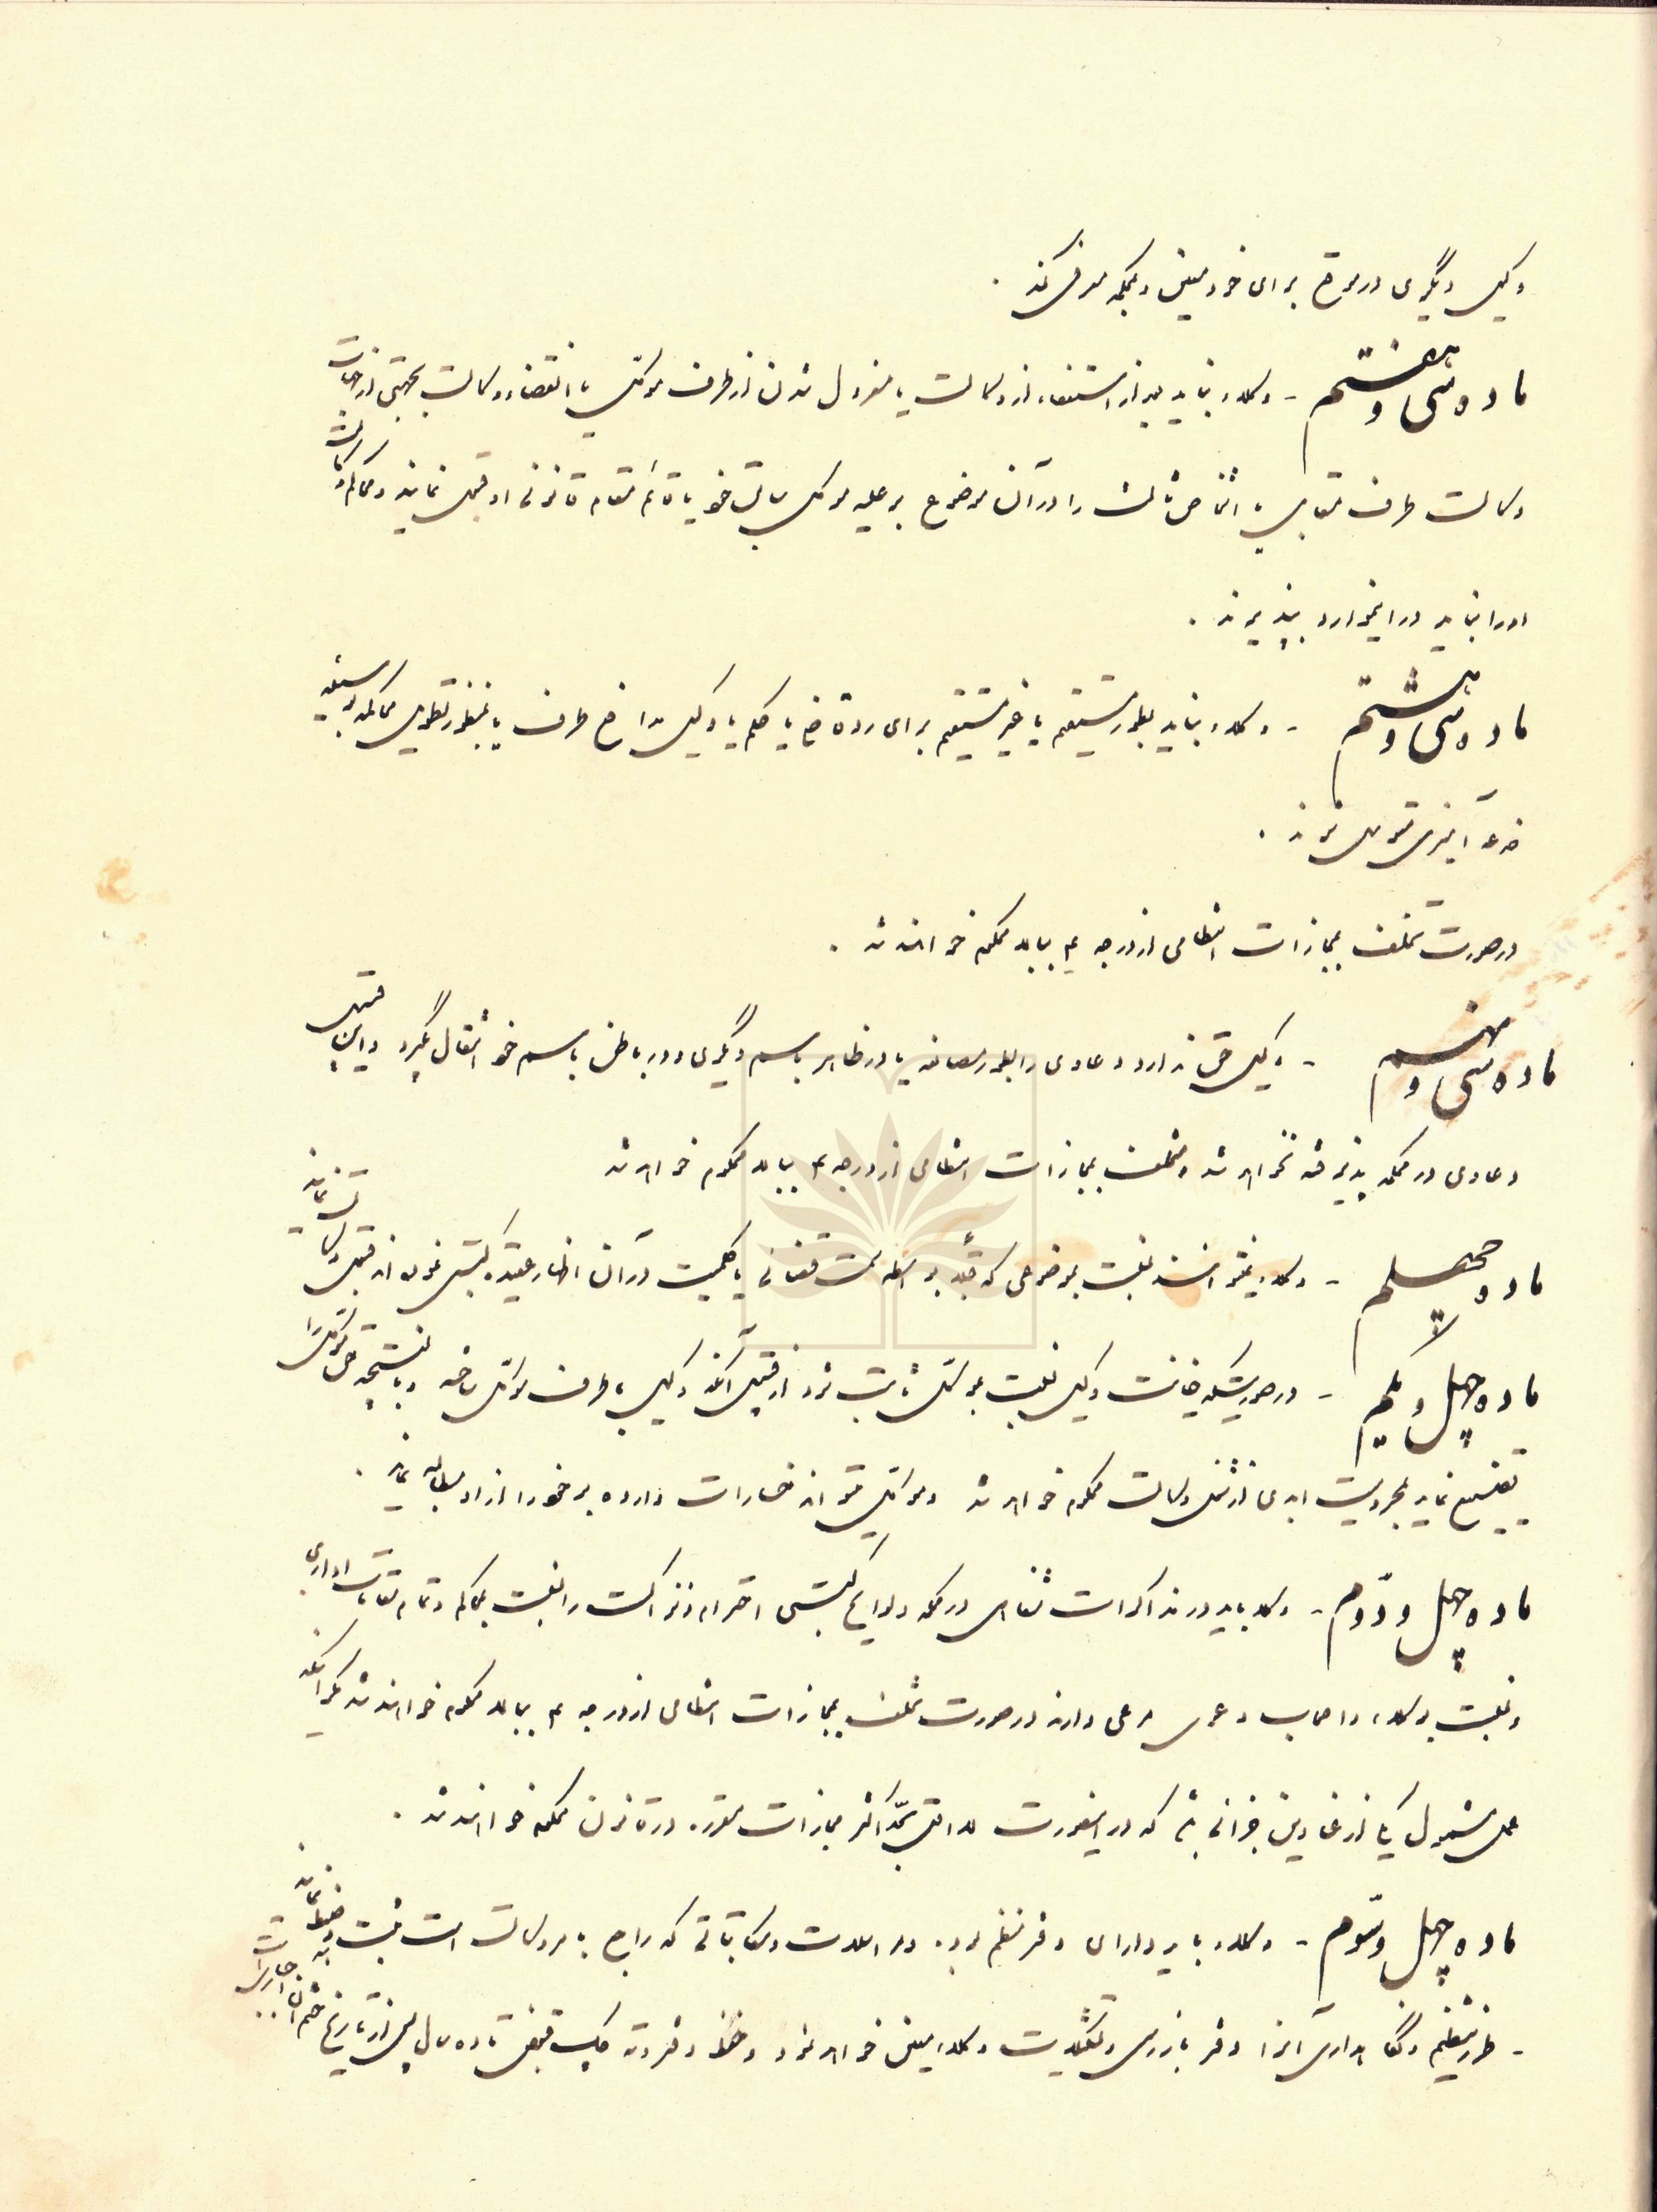 وکیل دیگری در موقع برای خود معین و بمحکمه معرفی کند .
ماده سی و هفتم - وکلاء نباید بعد از استعفاء از وکالت یا معزول شدن از طرف موکل یا انقضاء وکالت بجهتی از جهات
وکالت طرف مقابل یا اشخاص ثالث را در آن موضوع بر علیه موکل سابق خود یا قائم مقام قانونی او قبول نمایند و محاکم وکالت
او را نباید در اینموارد بپذیرند .
ماده سی و هشتم - وکلاء نباید بطور مستقیم یا غیر مستقیم برای رد قاضی یا حکم یا وکیل مدافع طرف یا بمنظور تطویل محاکمه بوسیله
خدعه آمیزی متوسل شوند .
در صورت تخلف بمجازات انتظامی از درجه ۴ ببالا محکوم خواهند شد .
ماده سی و نهم - وکیل حق ندارد دعاوی را بطور مصانعه یا در ظاهر باسم دیگری و در باطن باسم خود انتقال بگیرد و این قبیل
دعاوی در محکمه پذیرفته نخواهد شد و متخلف بمجازات انتظامی از درجه ۴ ببالا محکوم خواهد شد
ماده چهلم - وکلاء نمیتوانند نسبت بموضوعی که قبلاً بواسطه سمت قضائی یا حکمیت در آن اظهار عقیده کتبی نموده اند قبول وکالت نمایند
ماده چهل و یکم - در صورتیکه خیانت وکیل نسبت بموکل ثابت شود از قبیل آنکه وکیل با طرف موکل ساخته و بالنتیجه حق موکل را
تضییع نماید بمحرومیت ابدی از شغل وکالت محکوم خواهد شد و موکل میتواند خسارات وارده بر خود را از او مطالبه نماید .
ماده چهل و دوم - وکلا باید در مذاکرات شفاهی در محکمه و لوایح کتبی احترام و نزاکت را نسبت بمحاکم و تمام مقامات اداری
و نسبت بوکلاء و اصحاب دعوی مرعی دارند در صورت تخلف بمجازات انتظامی از درجه ۴ ببالا محکوم خواهند شد مگر اینکه
عمل مشمول یکی از عناوین جزائی باشد که در اینصورت لااقل بحد اکثر مجازات مقرره در قانون محکوم خواهند شد .
ماده چهل و سوم - وکلاء باید دارای دفتر منظم بوده و مراسلات و مکاتباتی که راجع بامر وکالت است ثبت و ضبط نمایند
- طرز تنظیم و نگاهداری آنرا دفتر بازرسی و تشکیلات وکلا معین خواهد نمود و حفظ دفتر و ته چک قبوض تا ده سال پس از تاریخ ختم آن اجباری است